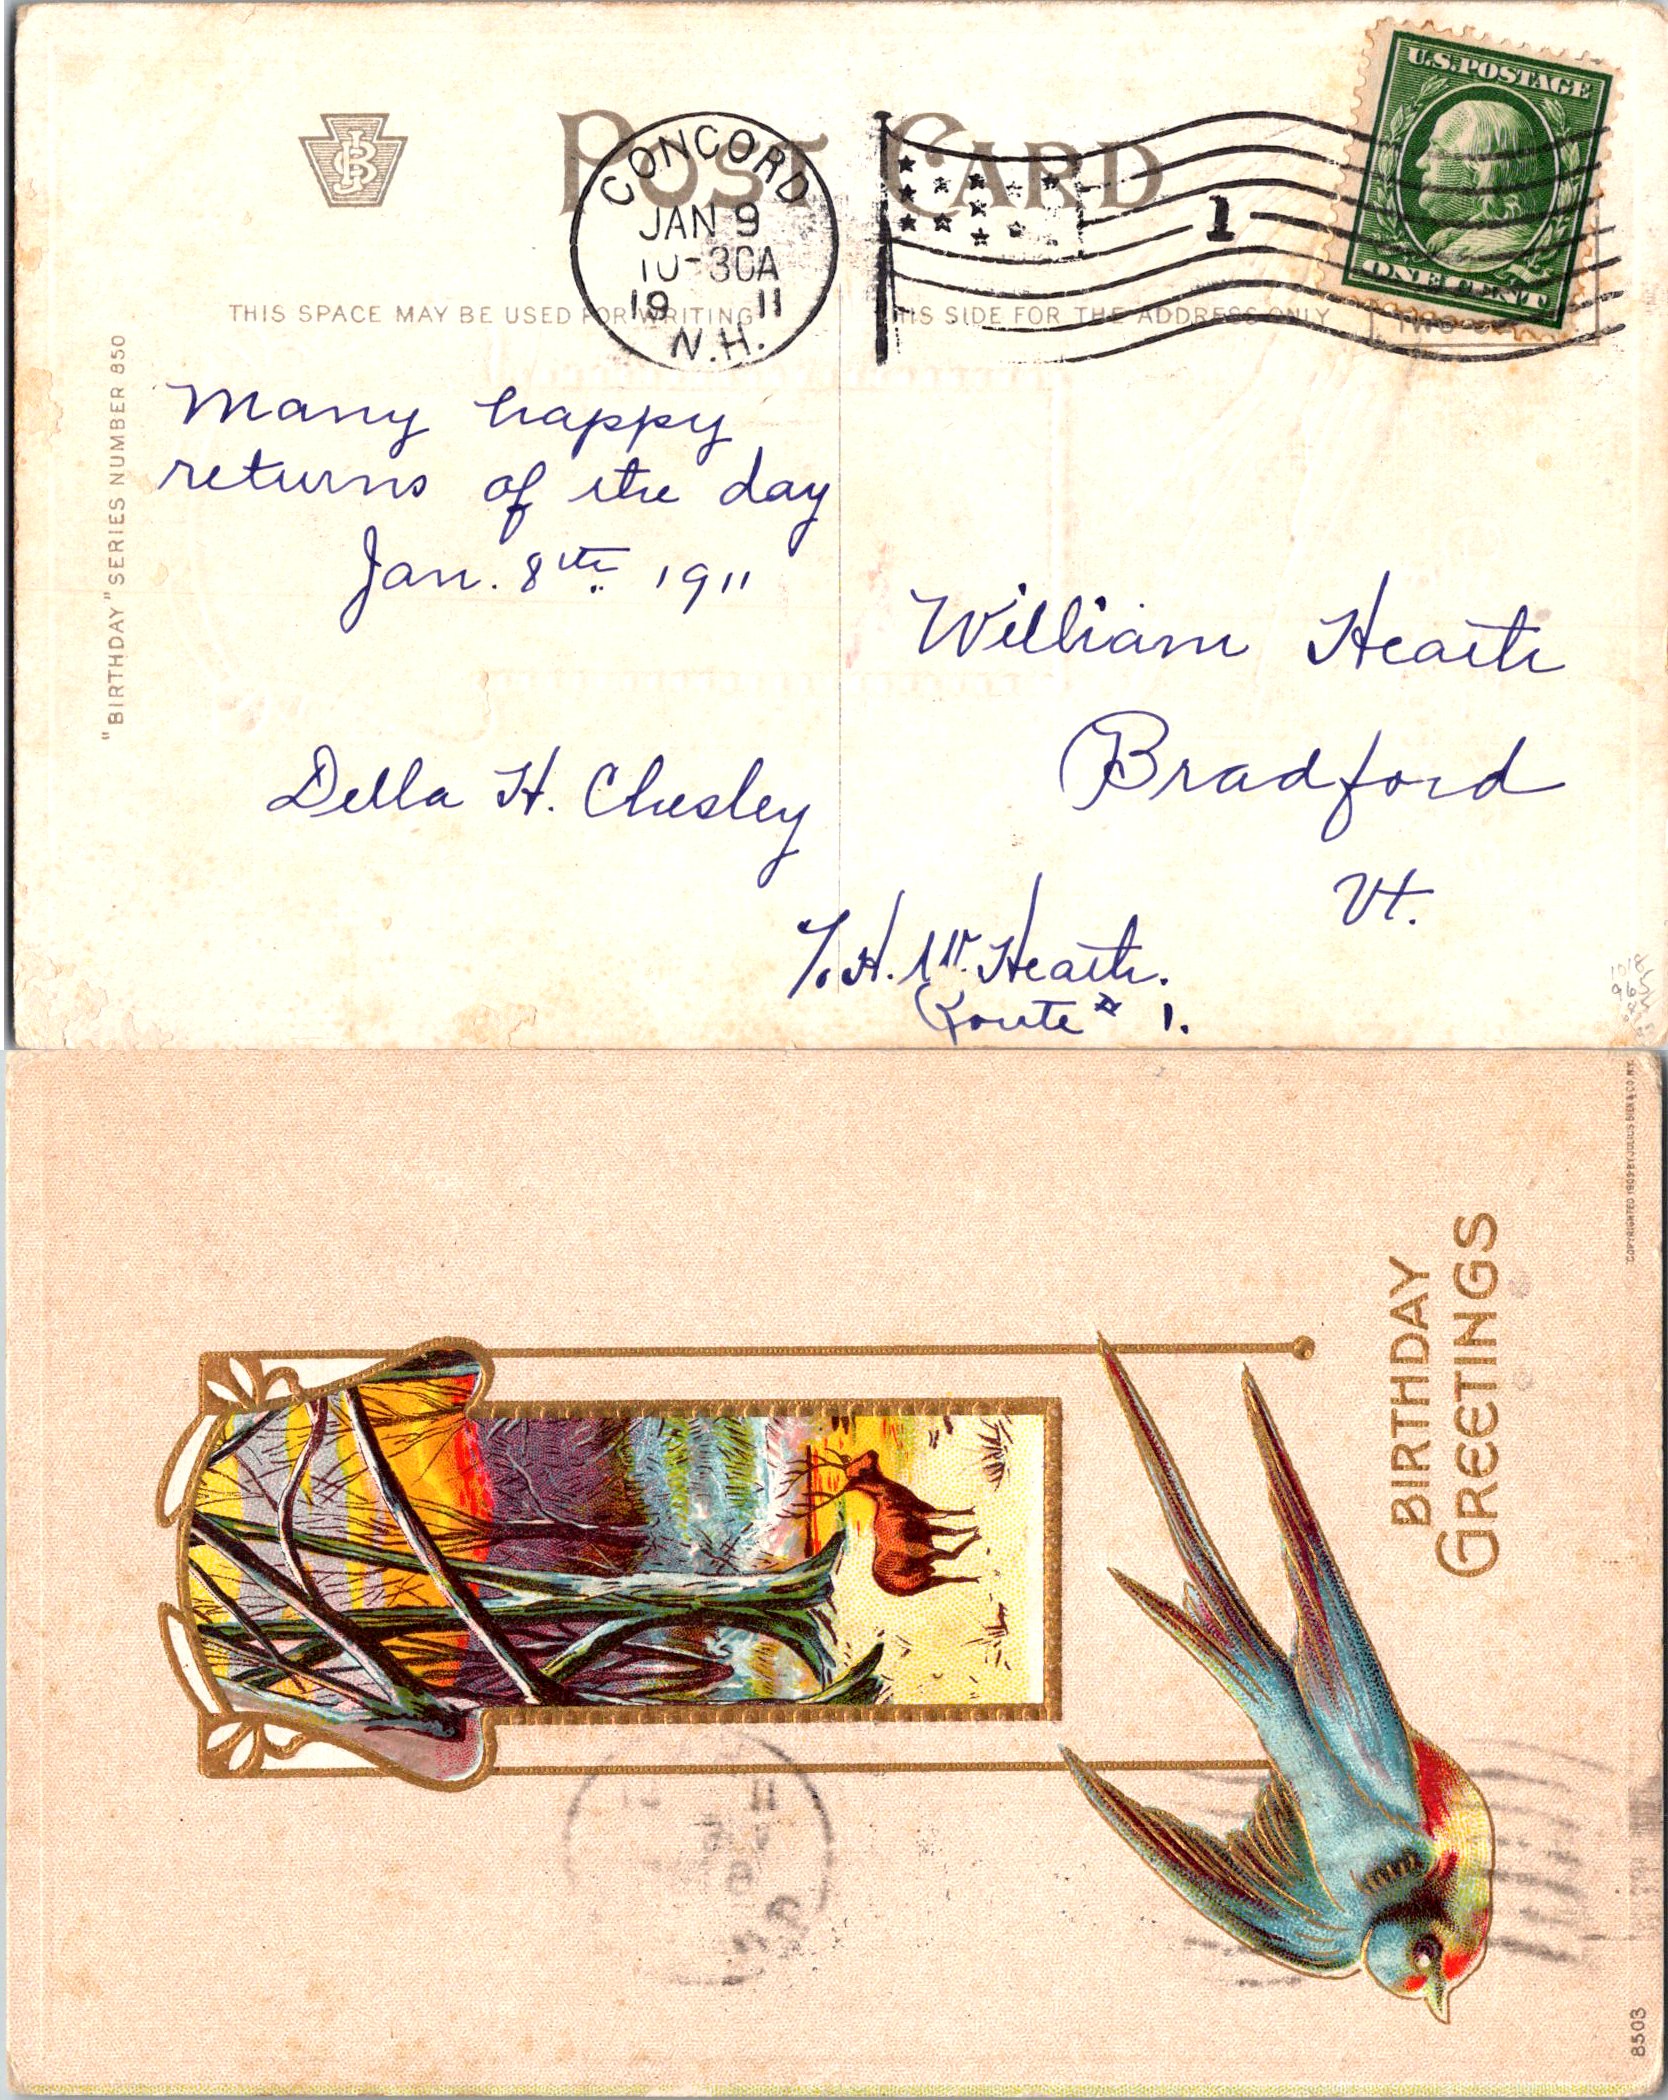 U.S. POSTAGE
ONE CENT
JBC
POST CARD
CONCORD
JAN 9
10-30A
19 11
N.H.
1
THIS SPACE MAY BE USED FOR WRITING
THIS SIDE FOR THE ADDRESS ONLY
TWO
"BIRTHDAY" SERIES NUMBER 850
Many happy
returns of the day
Jan. 8th 1911
Della H. Chesley
William Heath
Bradford
Vt.
Heath.
Route # 1.
BIRTHDAY
GREETINGS
COPYRIGHTED 1909 BY JULIUS BIEN & CO. N.Y.
8503